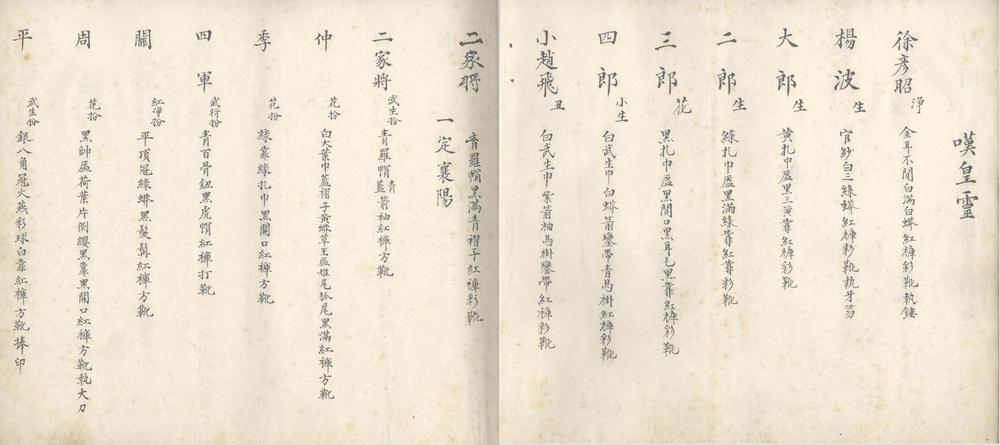 嘆皇靈
徐彥昭 淨 金耳不聞白滿白蟒紅褲彩靴執錘
楊波 生 官紗白三綹蟒紅褲彩靴執牙笏
大郎 生 黃扎巾盔黑三黃靠紅褲彩靴
二郎 生 綠扎巾盔黑滿綠靠紅靠彩靴
三郎 花 黑扎巾盔黑開口黑耳毛黑靠紅褲彩靴
四郎 小生 白武生巾白蟒箭鑾帶青馬褂紅褲彩靴
小趙飛 丑 白武生巾紫箭袖馬褂鑾帶紅褲彩靴
二家將 青羅帽黑滿青褶子紅褲彩靴
一定襄陽
二家將 武生扮 青羅帽青藍箭袖紅褲方靴
仲 花扮 白大葉巾藍褶子黃蟒草王盔雉尾狐尾黑滿紅褲方靴
季 花扮 綠靠綠扎巾黑開口紅褲方靴
四軍 武行扮 青百骨鈕黑虎帽紅褲打靴
關 紅淨扮 平頂冠綠蟒黑髮髯紅褲方靴
周 花扮 黑帥盔荷葉片倒纓黑靠黑開口紅褲方靴執大刀
平 武生扮 銀八角冠火燕彩球白靠紅褲方靴捧印